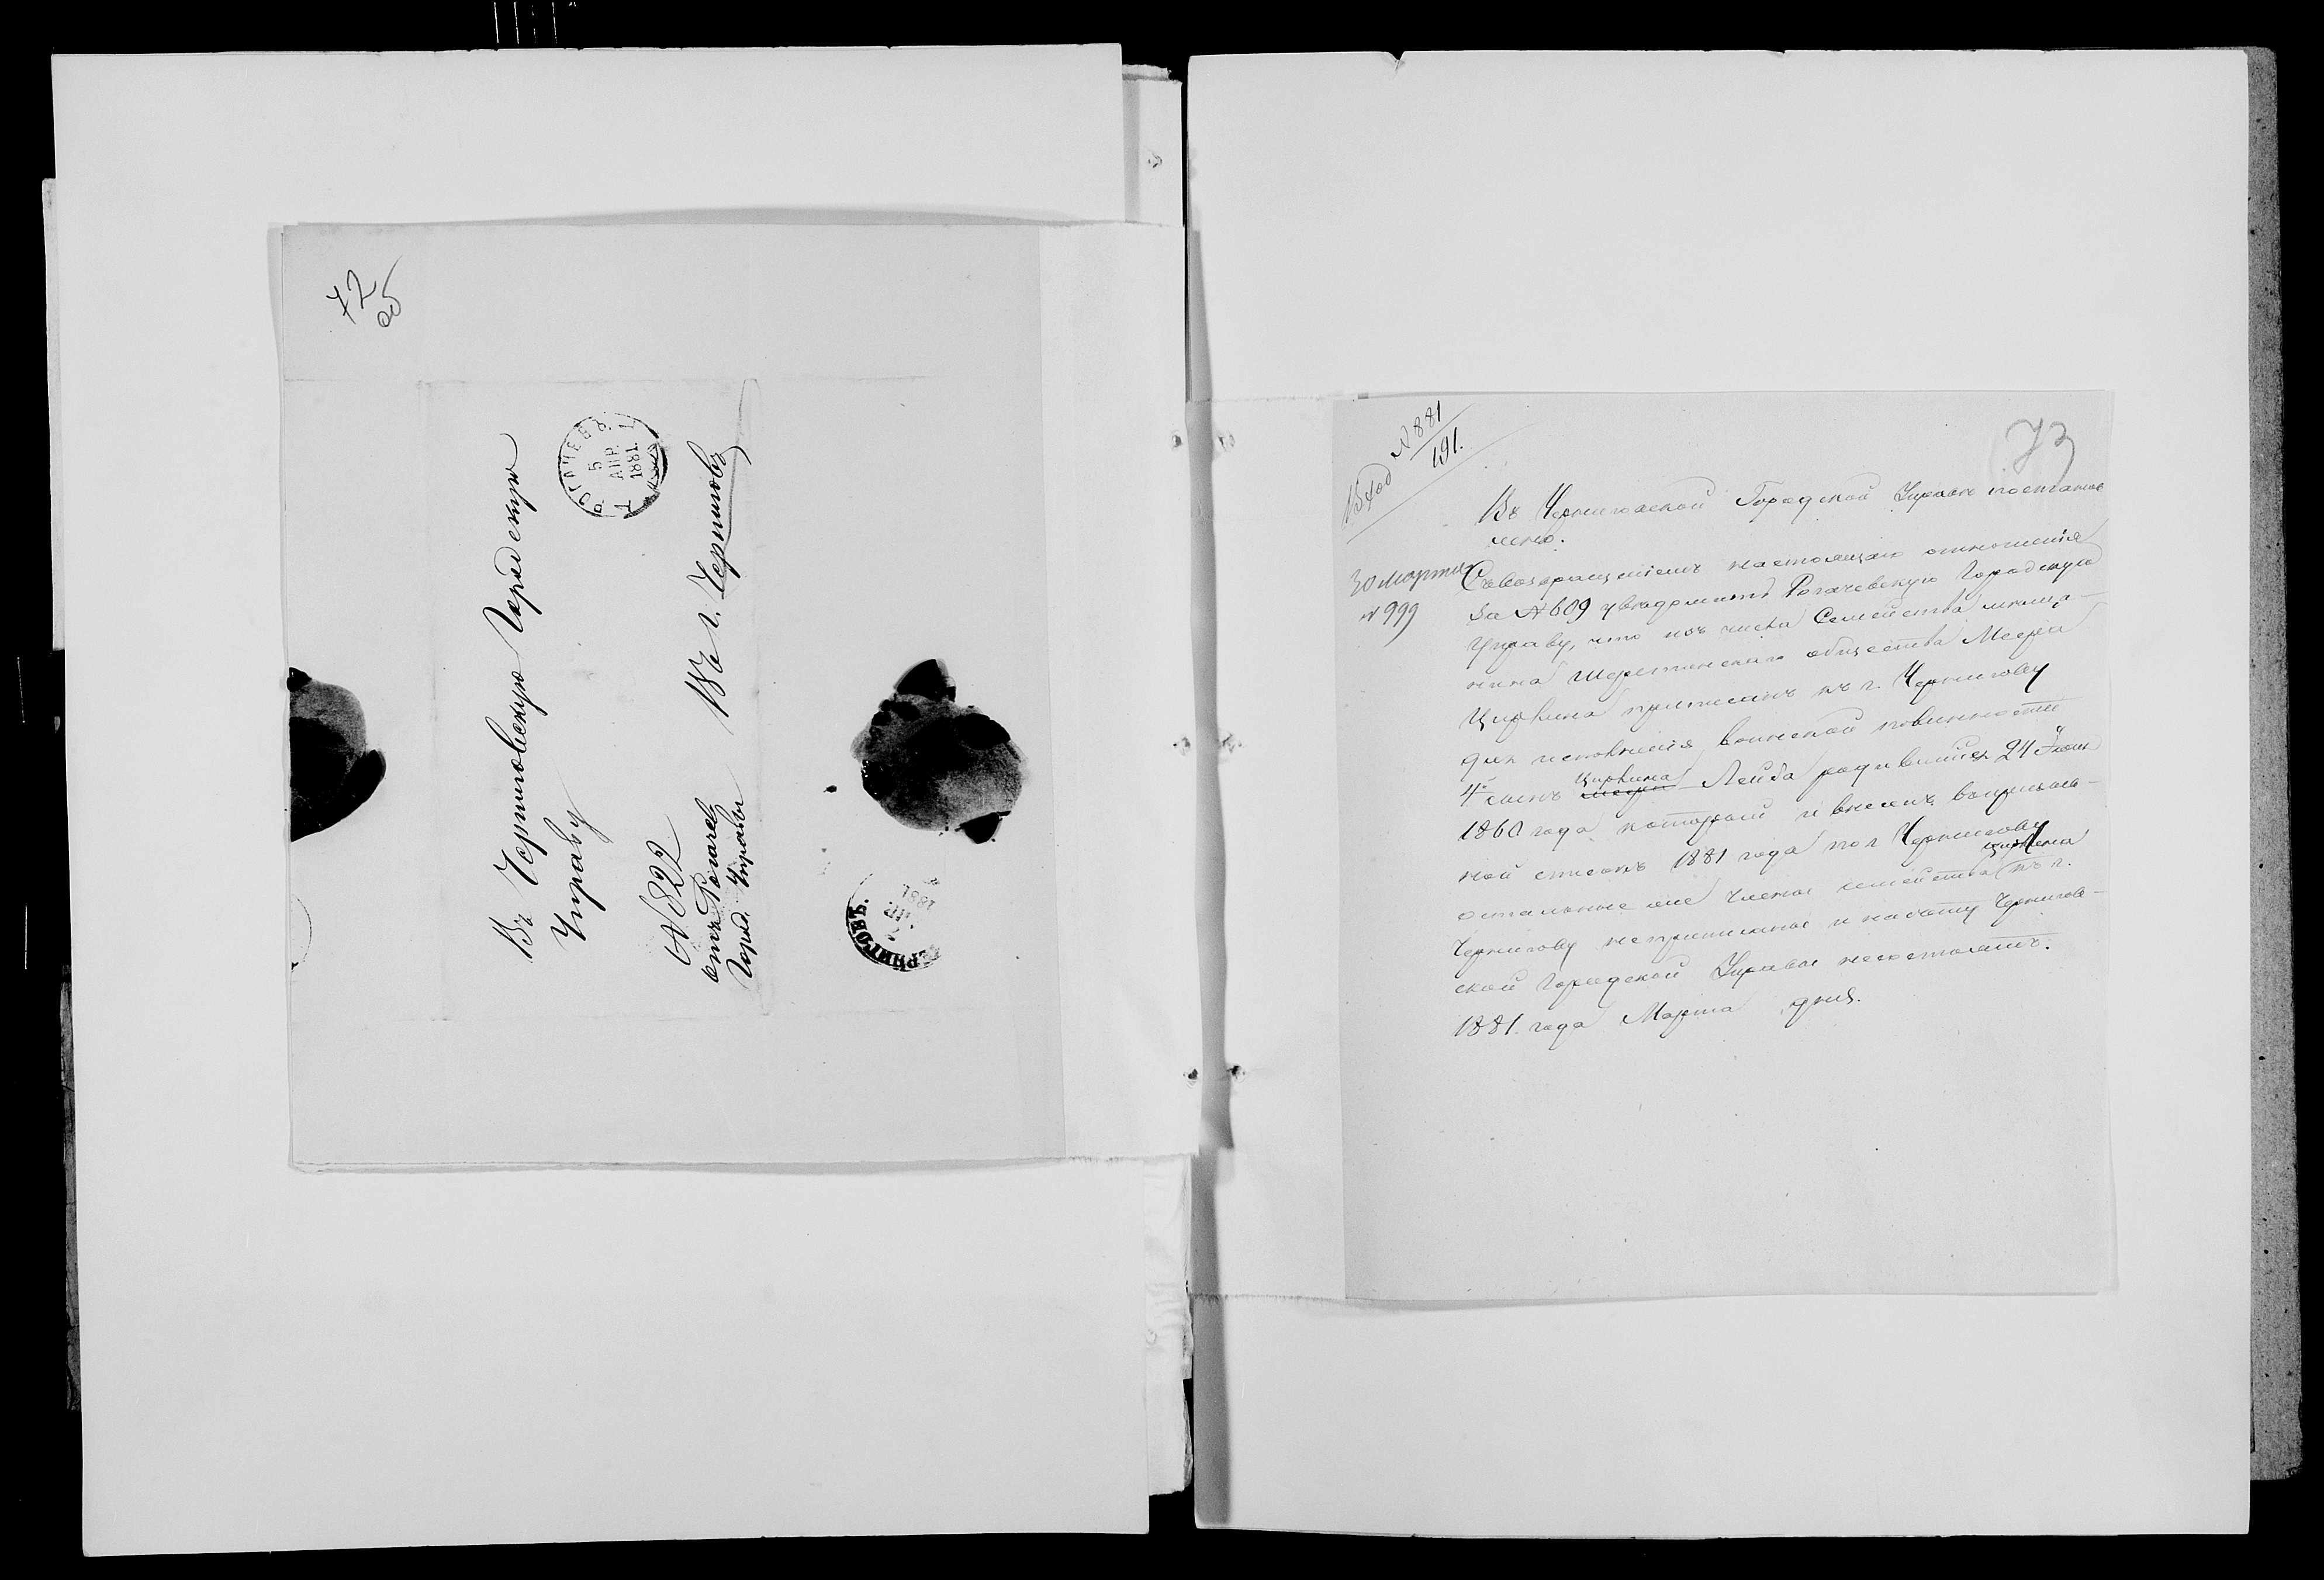 72
об
Въ Черниговскую Городскую
Управу
РОГАЧЕВЪ
5
АПР.
1881
№ 822
Отъ Рогачев
Город. Управы
Въ г. Черниговъ
ЧЕРНИГОВЪ.
1881
73
Вход № 881
191.
30 Марта
№ 999
Въ Черниговской Городской Управѣ постанов
лено:
Съ возвращеніемъ настоящаго отношенія
за № 609 увѣдомить Рогачевскую Городскую
Управу, что изъ числа Семейства мѣща-
нина общества Меера
Циркина приписанъ къ г. Чернигову
для исполненія воинской повинности
4й сынъ Циркина Лейба родившійся 24
1860 года который и внесенъ въ призыв-
ной списокъ 1881 года по г. Чернигову
остальные же члены семейства Циркина къ г.
Чернигову неприписаны и на счету Чернигов-
ской Городской Управы несостоятъ.
1881 года Марта дня.